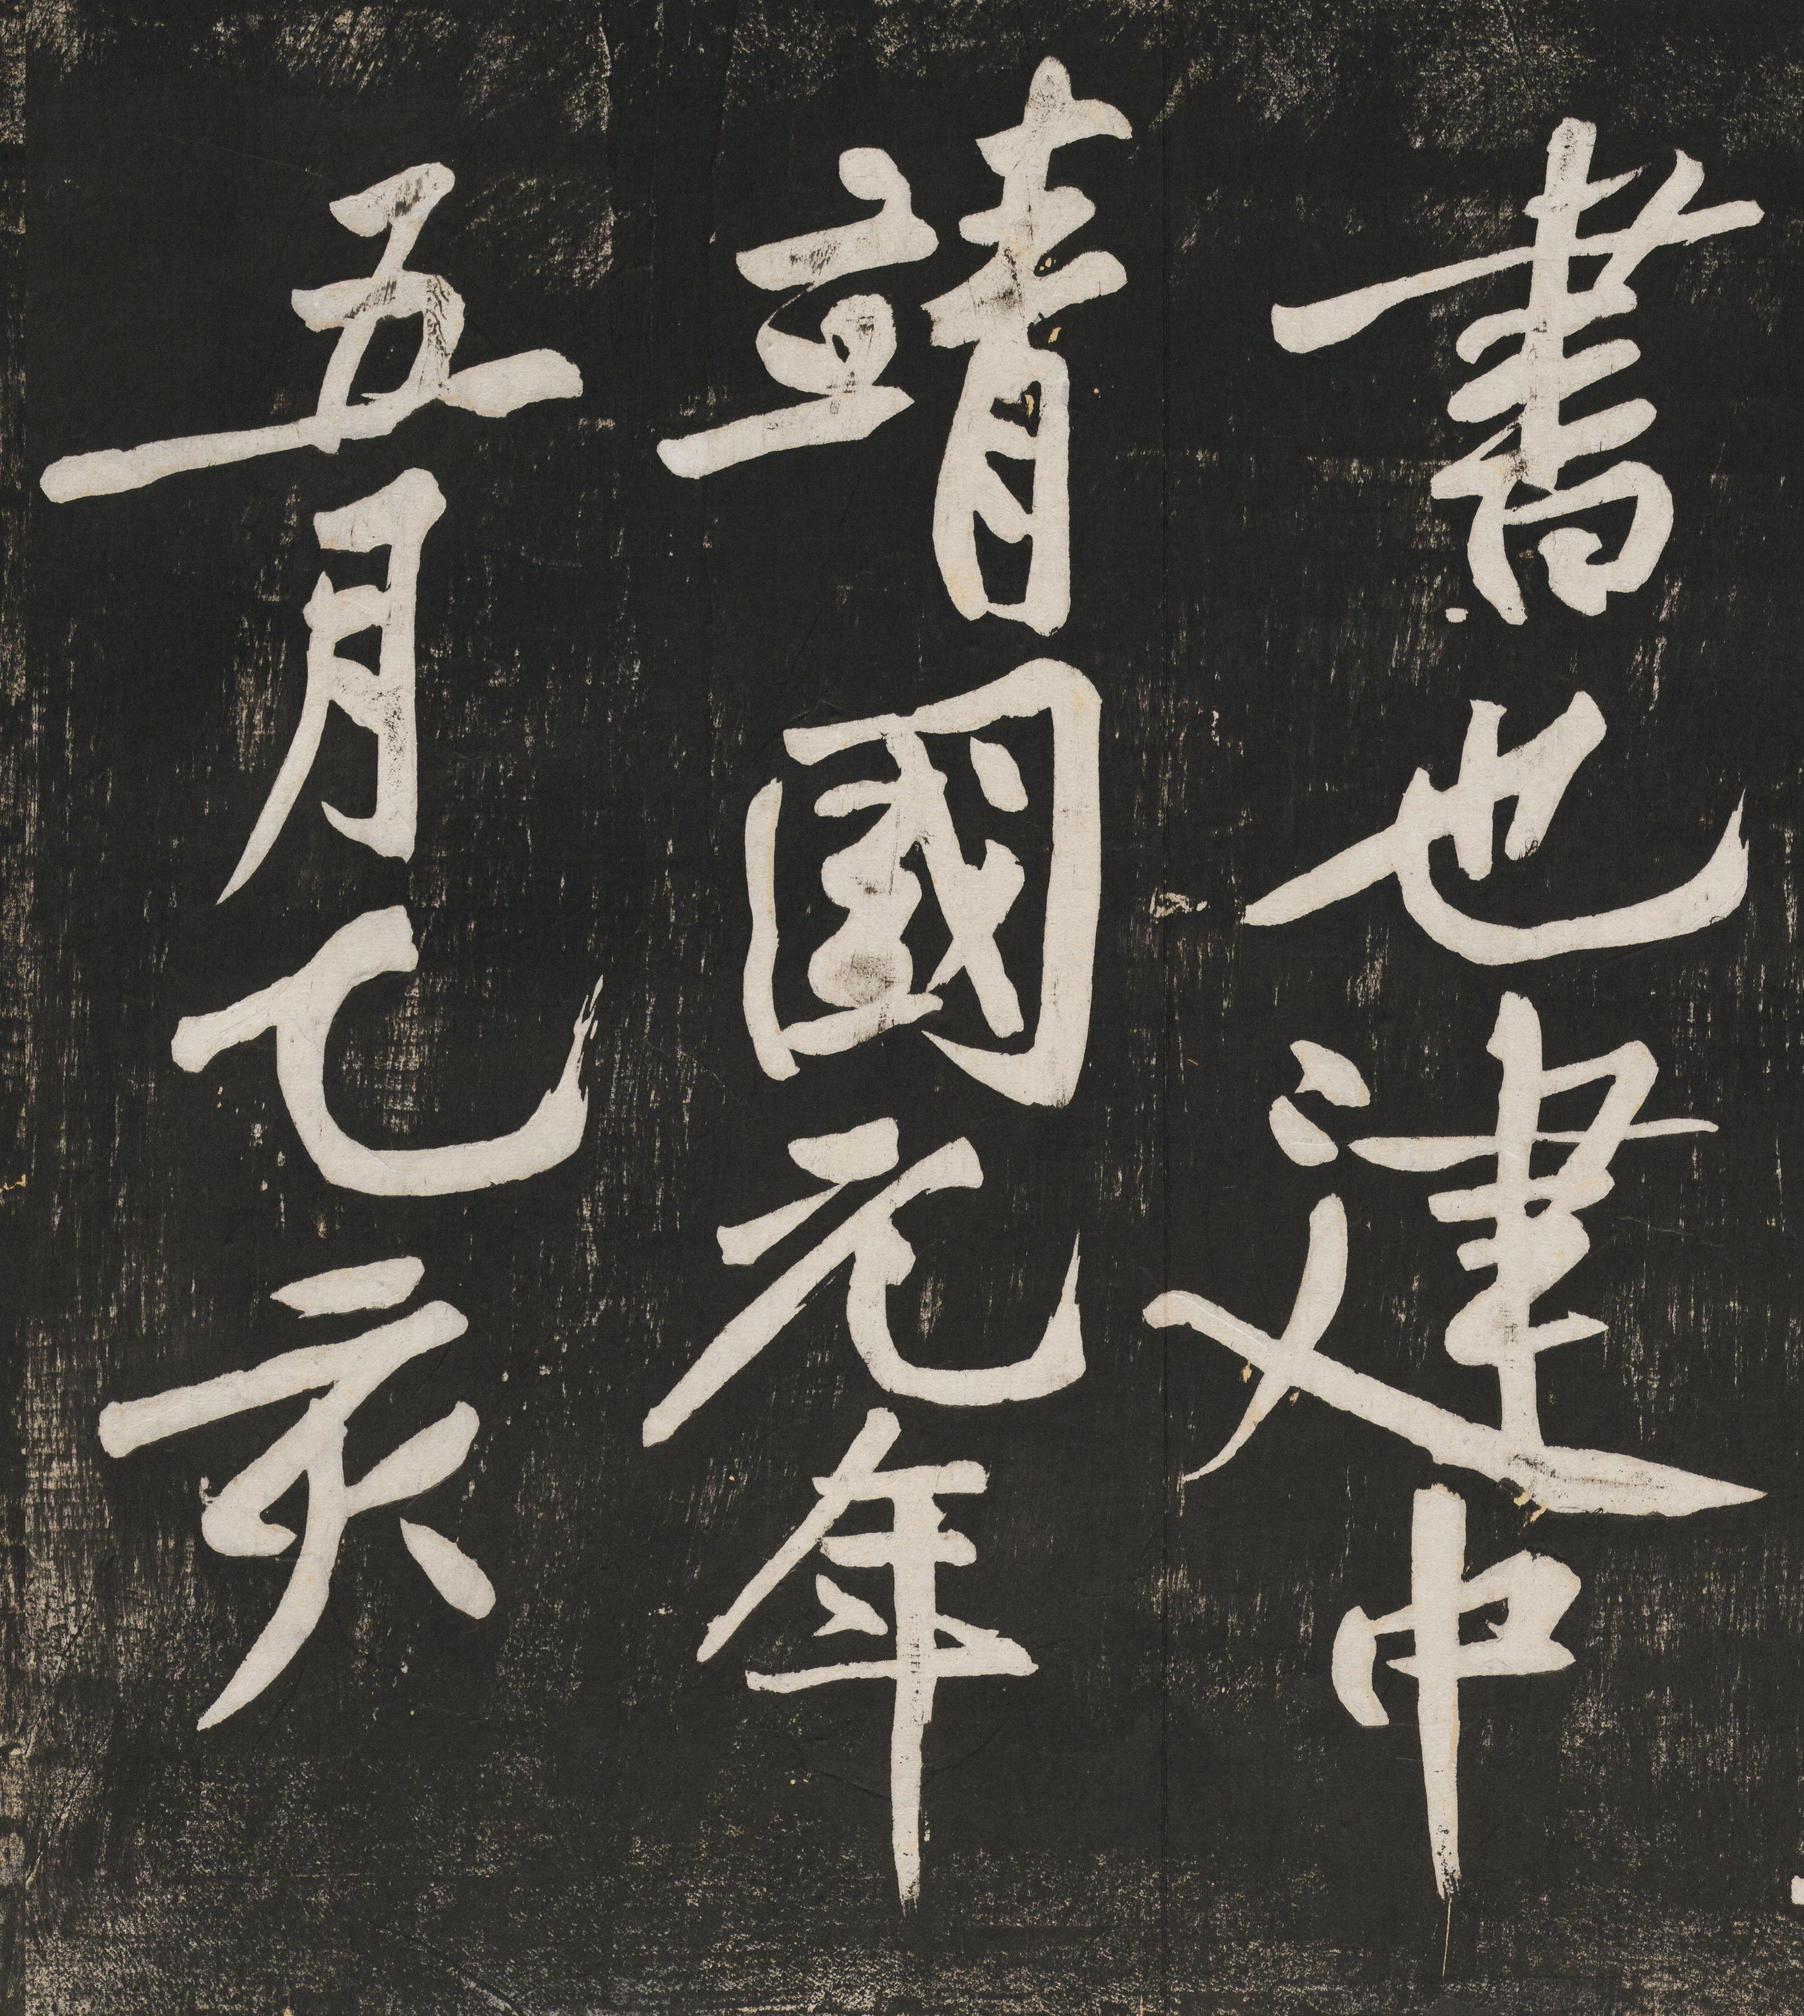 書也建中
靖國元年
五月乙亥